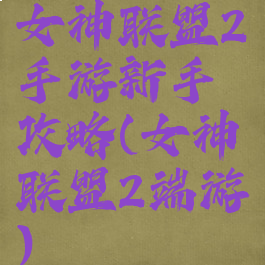 女神联盟2
手游新手
攻略(女神
联盟2端游
)